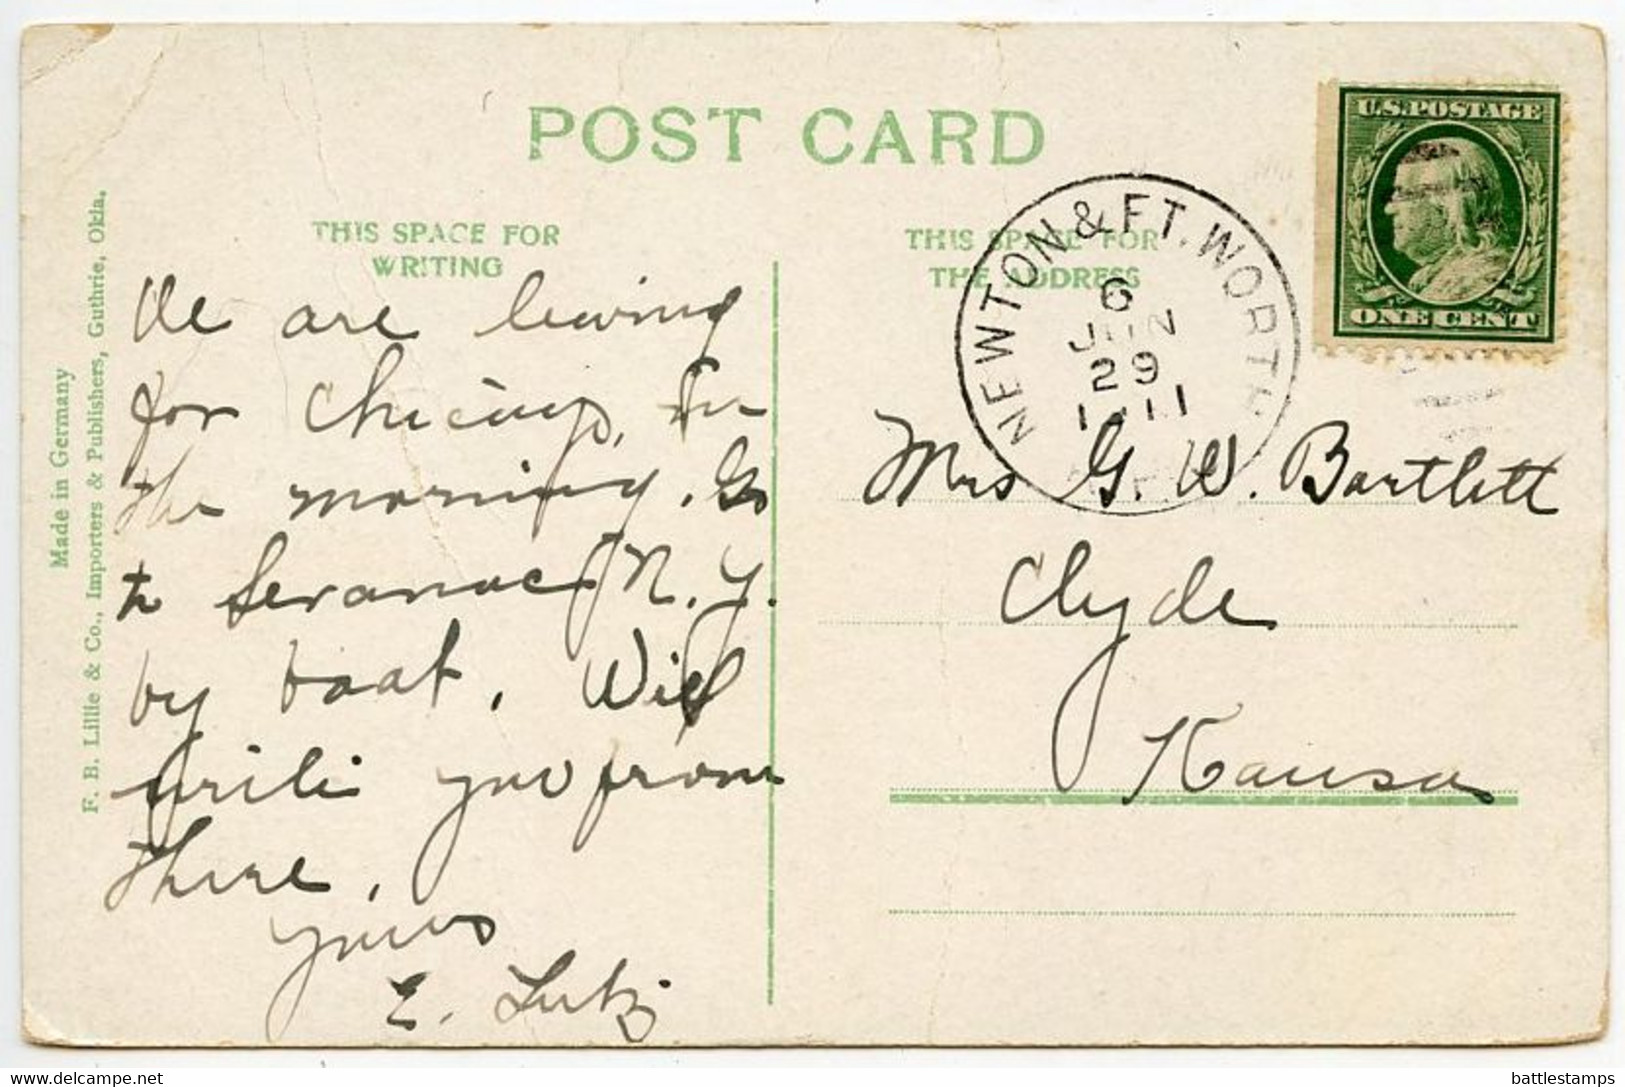 POST CARD
THIS SPACE FOR
WRITING
THIS SPACE FOR
THE ADDRESS
U.S. POSTAGE
ONE CENT
NEWTON & FT. WORTH
6
JUN
29
1911
We are leaving
for Chicago, in
the morning. Go
to Seranac N. Y.
by boat. Will
write you from
there.
yours
E. Lutz
Mrs G. W. Bartlett
Clyde
Kansa
Made in Germany
F. B. Lillie & Co., Importers & Publishers, Guthrie, Okla.
delcampe.net
battlestamps